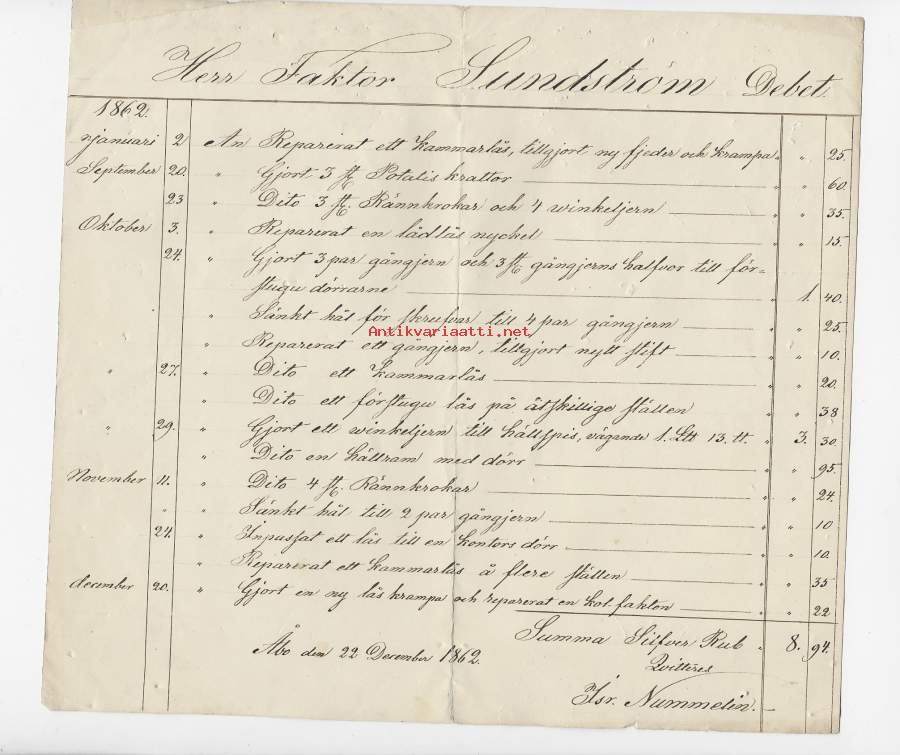 Herr Faktor Sundström Debet.
1862.
njanuari 2 An Reparerat ett Kammarlås, tillgjort ny fjeder och krampa " " 25.
September 20. " Gjort 3 st Potatis krattor " " 60.
23 " Dito 3 st. Rännkrokar och 4 winkeljern " " 35.
Oktober 3. " Reparerat en lådlås nyckel " " 15.
24. " Gjort 3 par gångjern och 3 st gångjerns halfvor till för=
stugu dörrarne " 1. 40.
" Sänkt hål för skrufvar till 4 par gångjern " " 25.
" Reparerat ett gångjern, tillgjort nytt stift " " 10.
" 27. " Dito ett Kammarlås " " 20.
" Dito ett förstugu lås på åtskillige ställen " " 38
" 29. " Gjort ett winkeljern till hällspis, vägande 1. Ltt 13. tt. " 3. 30.
" Dito en hällram med dörr " " 95.
November 11. " Dito 4 st. Rännkrokar " " 24.
" " Sänkt hål till 2 par gångjern " " 10
24. " Inpassat ett lås till en Kontors dörr " " 10.
" Reparerat ett Kammarlås å flere ställen " " 35
december 20. " Gjort en ny lås krampa och reparerat en Kol fakton " " 22
Summa Silfver Rub " 8. 94.
Åbo den 22 December 1862.
Qvitteres
Isr. Nummelin.
Antikvariaatti.net